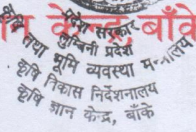 न केन्द्र, बाँके
प्रदेश सरकार
लुम्बिनी प्रदेश
कृषि तथा भूमि व्यवस्था मन्त्रालय
कृषि विकास निर्देशनालय
कृषि ज्ञान केन्द्र, बाँके